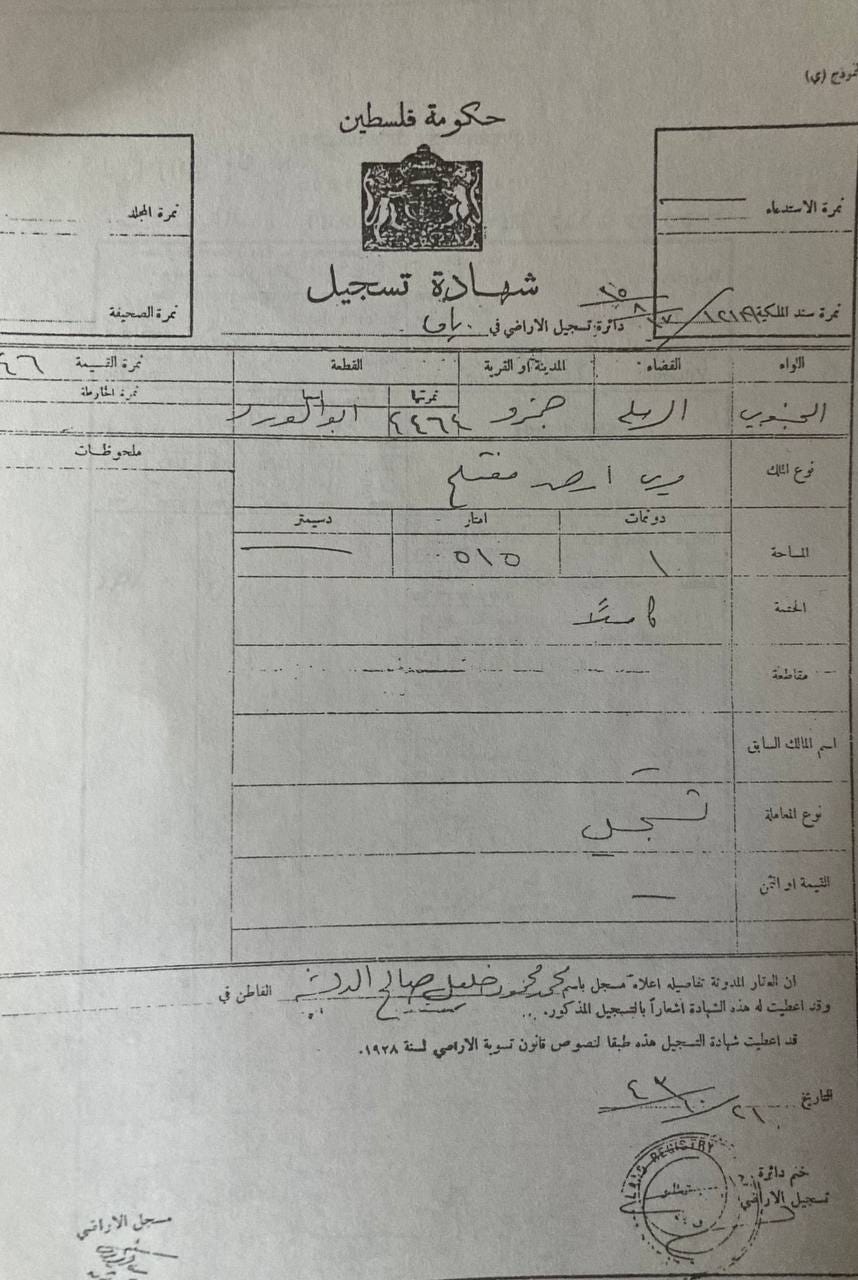 نموذج (ي)
حكومة فلسطين
نمرة الاستدعاء
نمرة المجلد
شهادة تسجيل
نمرة سند الملكية
دائرة تسجيل الاراضي في يافا
نمرة الصحيفة
اللواء القضاء المدينة او القرية القطعة نمرة القسيمة ٤٦
نمرتها نمرة الخارطة
الجنوبي الرملة جمزو
نوع الملك ميري ارض مفتلح
ملحوظات
دونمات امتار دسيمتر
المساحة ١ ٥١٥
الحصة كاملاً
مقاطعة
اسم المالك السابق
نوع المعاملة تسجيل
القيمة او الثمن
ان العقار المدونة تفاصيله اعلاه مسجل باسم محمد محمود خليل صالح القاطن في
وقد اعطيت له هذه الشهادة اشعاراً بالتسجيل المذكور.
قد اعطيت شهادة التسجيل هذه طبقا لنصوص قانون تسوية الاراضي لسنة ١٩٢٨.
التاريخ ٢١/١٠/٤٣
LAND REGISTRY
ختم دائرة
تسجيل الاراضي
مسجل الاراضي